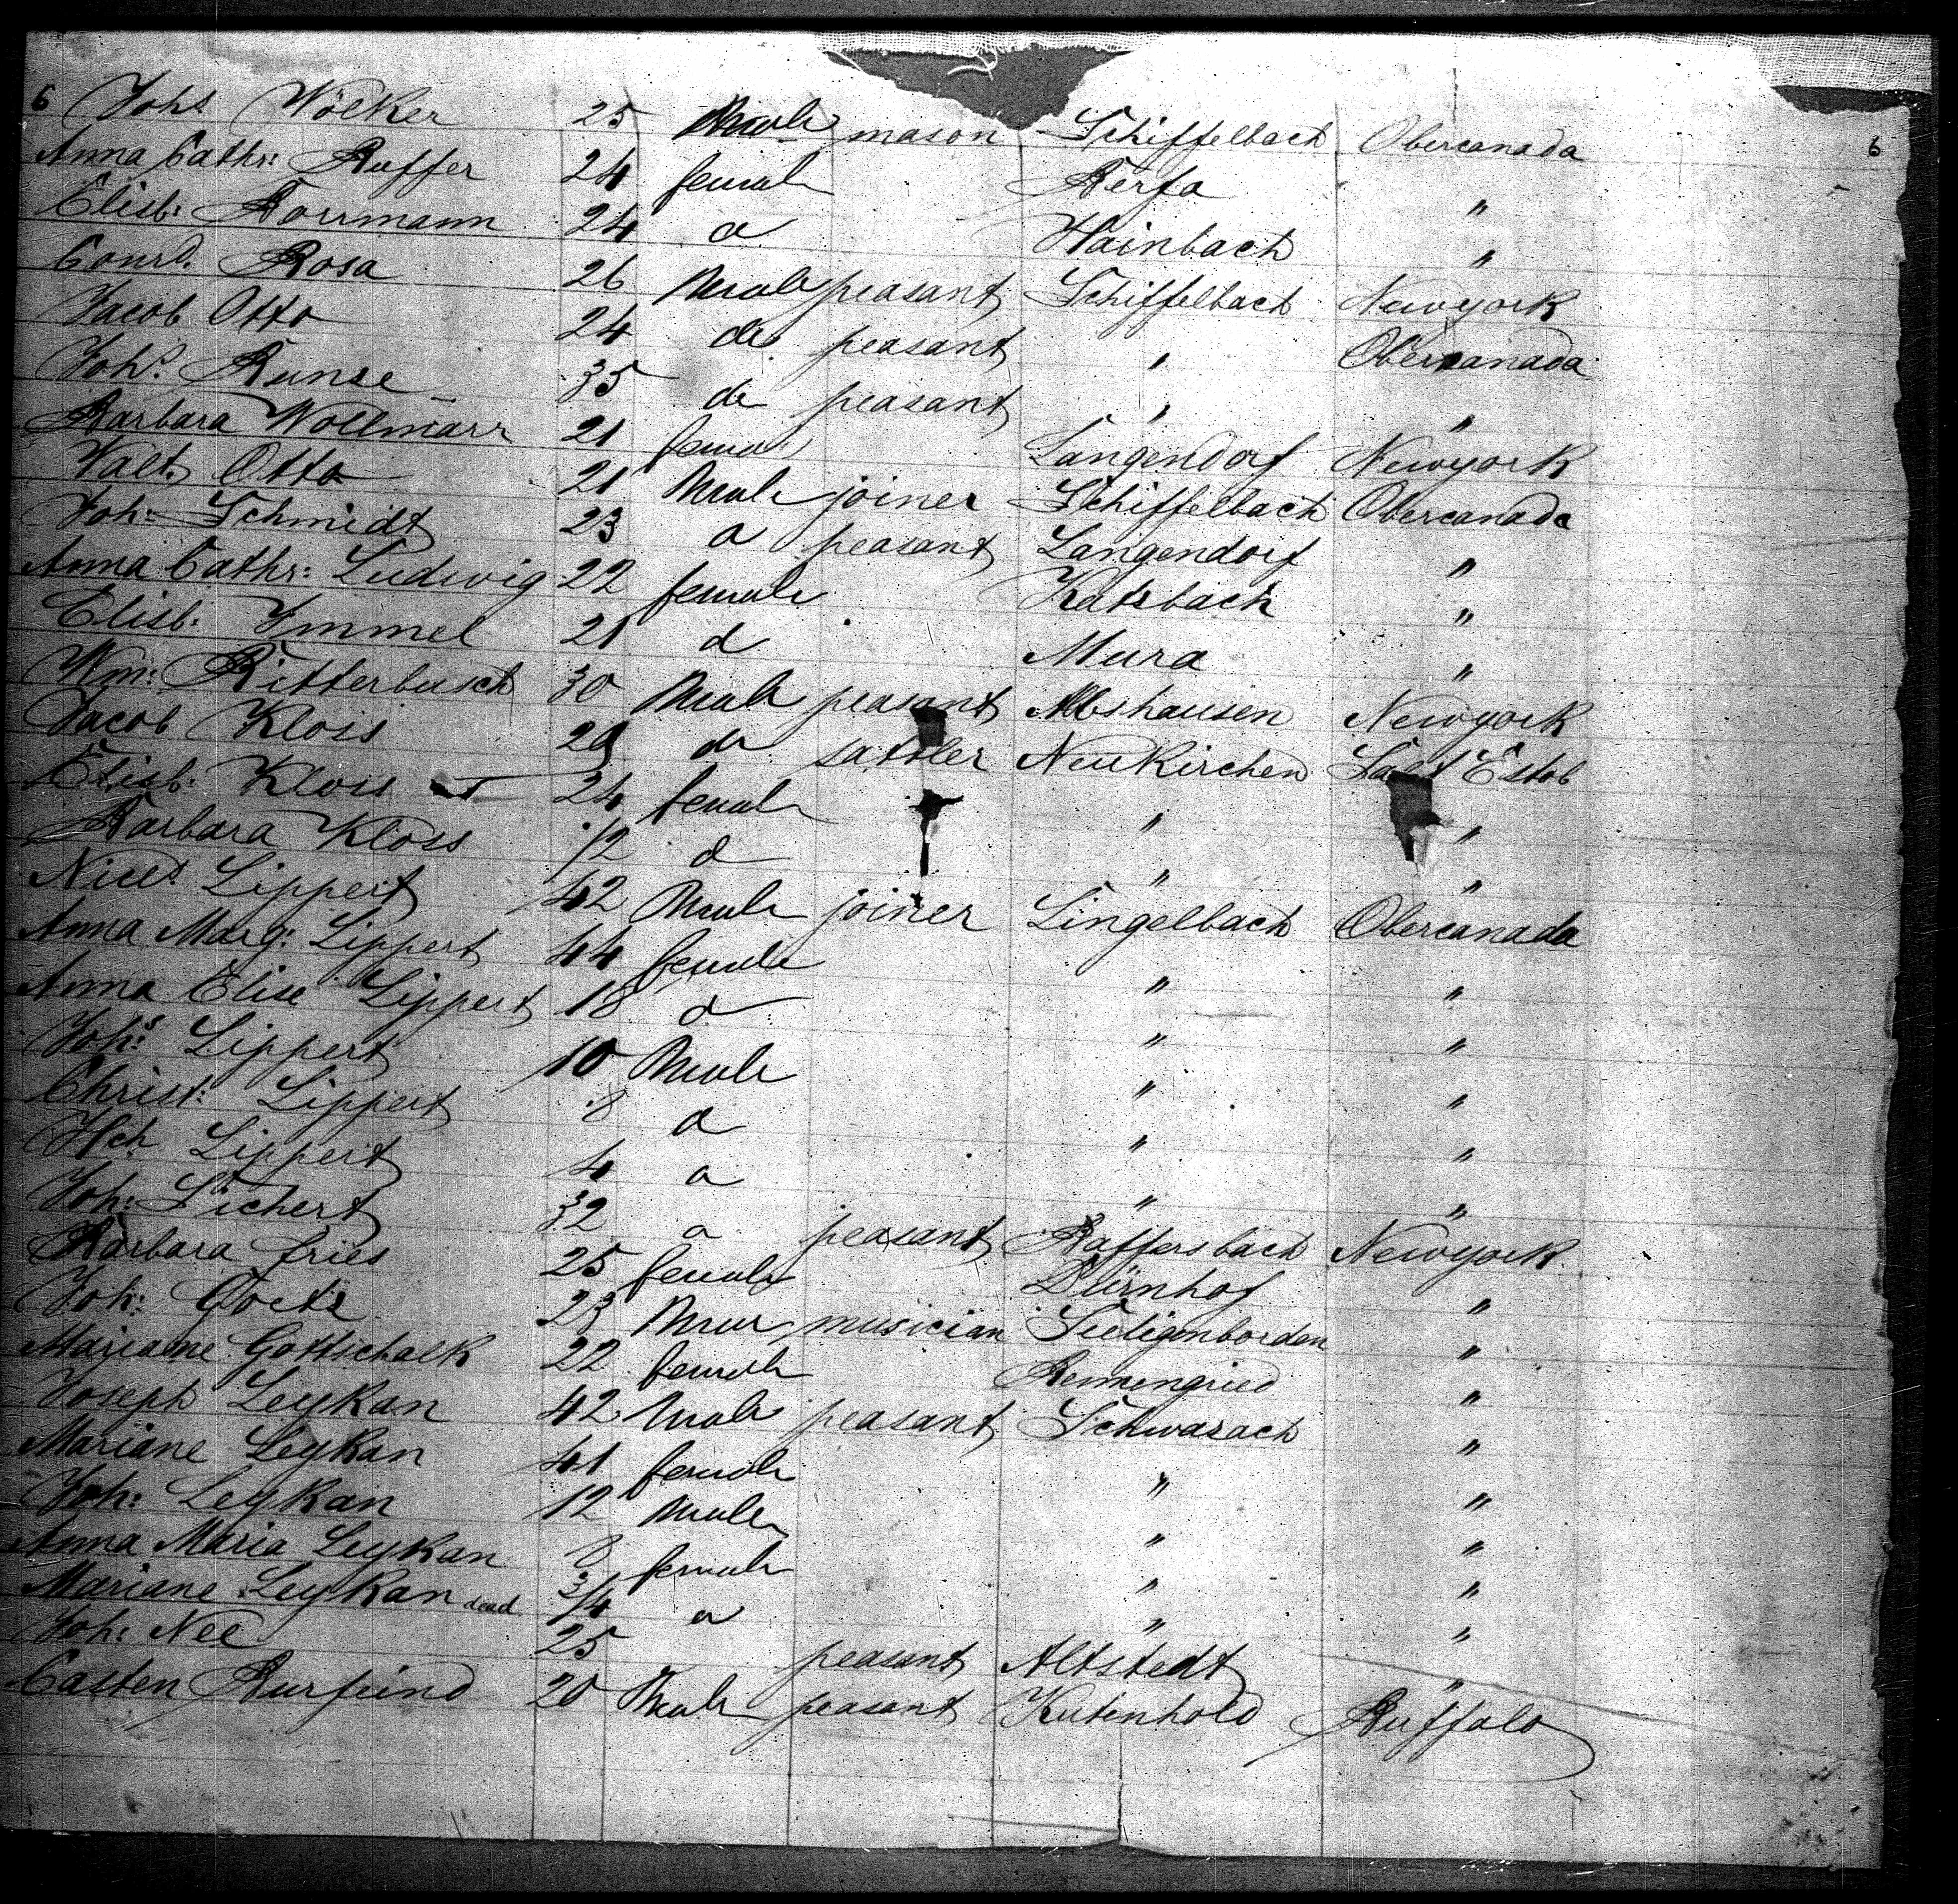 6 Johs Wölker 25 Male mason Schiffelbach Obercanada 6
Anna Cathr: Ruffer 24 female Berfa "
Elisb: Borrmann 24 d Hainbach "
Conrd. Rosa 26 Male peasant Schiffelbach Newyork
Jacob Otto 24 do peasant " Obercanada
Joh: Bunse 35 do peasant " "
Barbara Wollmarr 21 female Langendorf Newyork
Valt. Otto 21 Male joiner Schiffelbach Obercanada
Joh: Schmidt 23 d peasant Langendorf "
Anna Cathr: Ludwig 22 female Hatsbach "
Elisb. Immel 21 d Mura "
Wm: Ritterbusch 30 Male peasant Albshausen Newyork
Jacob Klois 29 do sattler Neukirchen
Elisb. Klois 24 female " "
Barbara Kloss 1/2 d " "
Nicls Lippert 42 Male joiner Lingelbach Obercanada
Anna Marg: Lippert 44 female " "
Anna Elise Lippert 18 d " "
Johs: Lippert 10 Male " "
Christ: Lippert 8 d " "
Hch Lippert 4 d " "
Joh: Sichert 32 d peasant Raffersbach Newyork
Barbara Fries 25 female Dürnhof "
Joh: Goetz 23 Male musician "
Mariane Gottschalk 22 female "
Joseph Leykan 42 Male peasant Schwarach "
Mariane Leykan 41 female " "
Joh: Leykan 12 Male " "
Anna Maria Leykan 8 female " "
Mariane Leykan dead 3/4 d " "
Joh: Nee 25 peasant Altstedt "
Casten Burfeind 20 Male peasant Kutenhold Buffalo